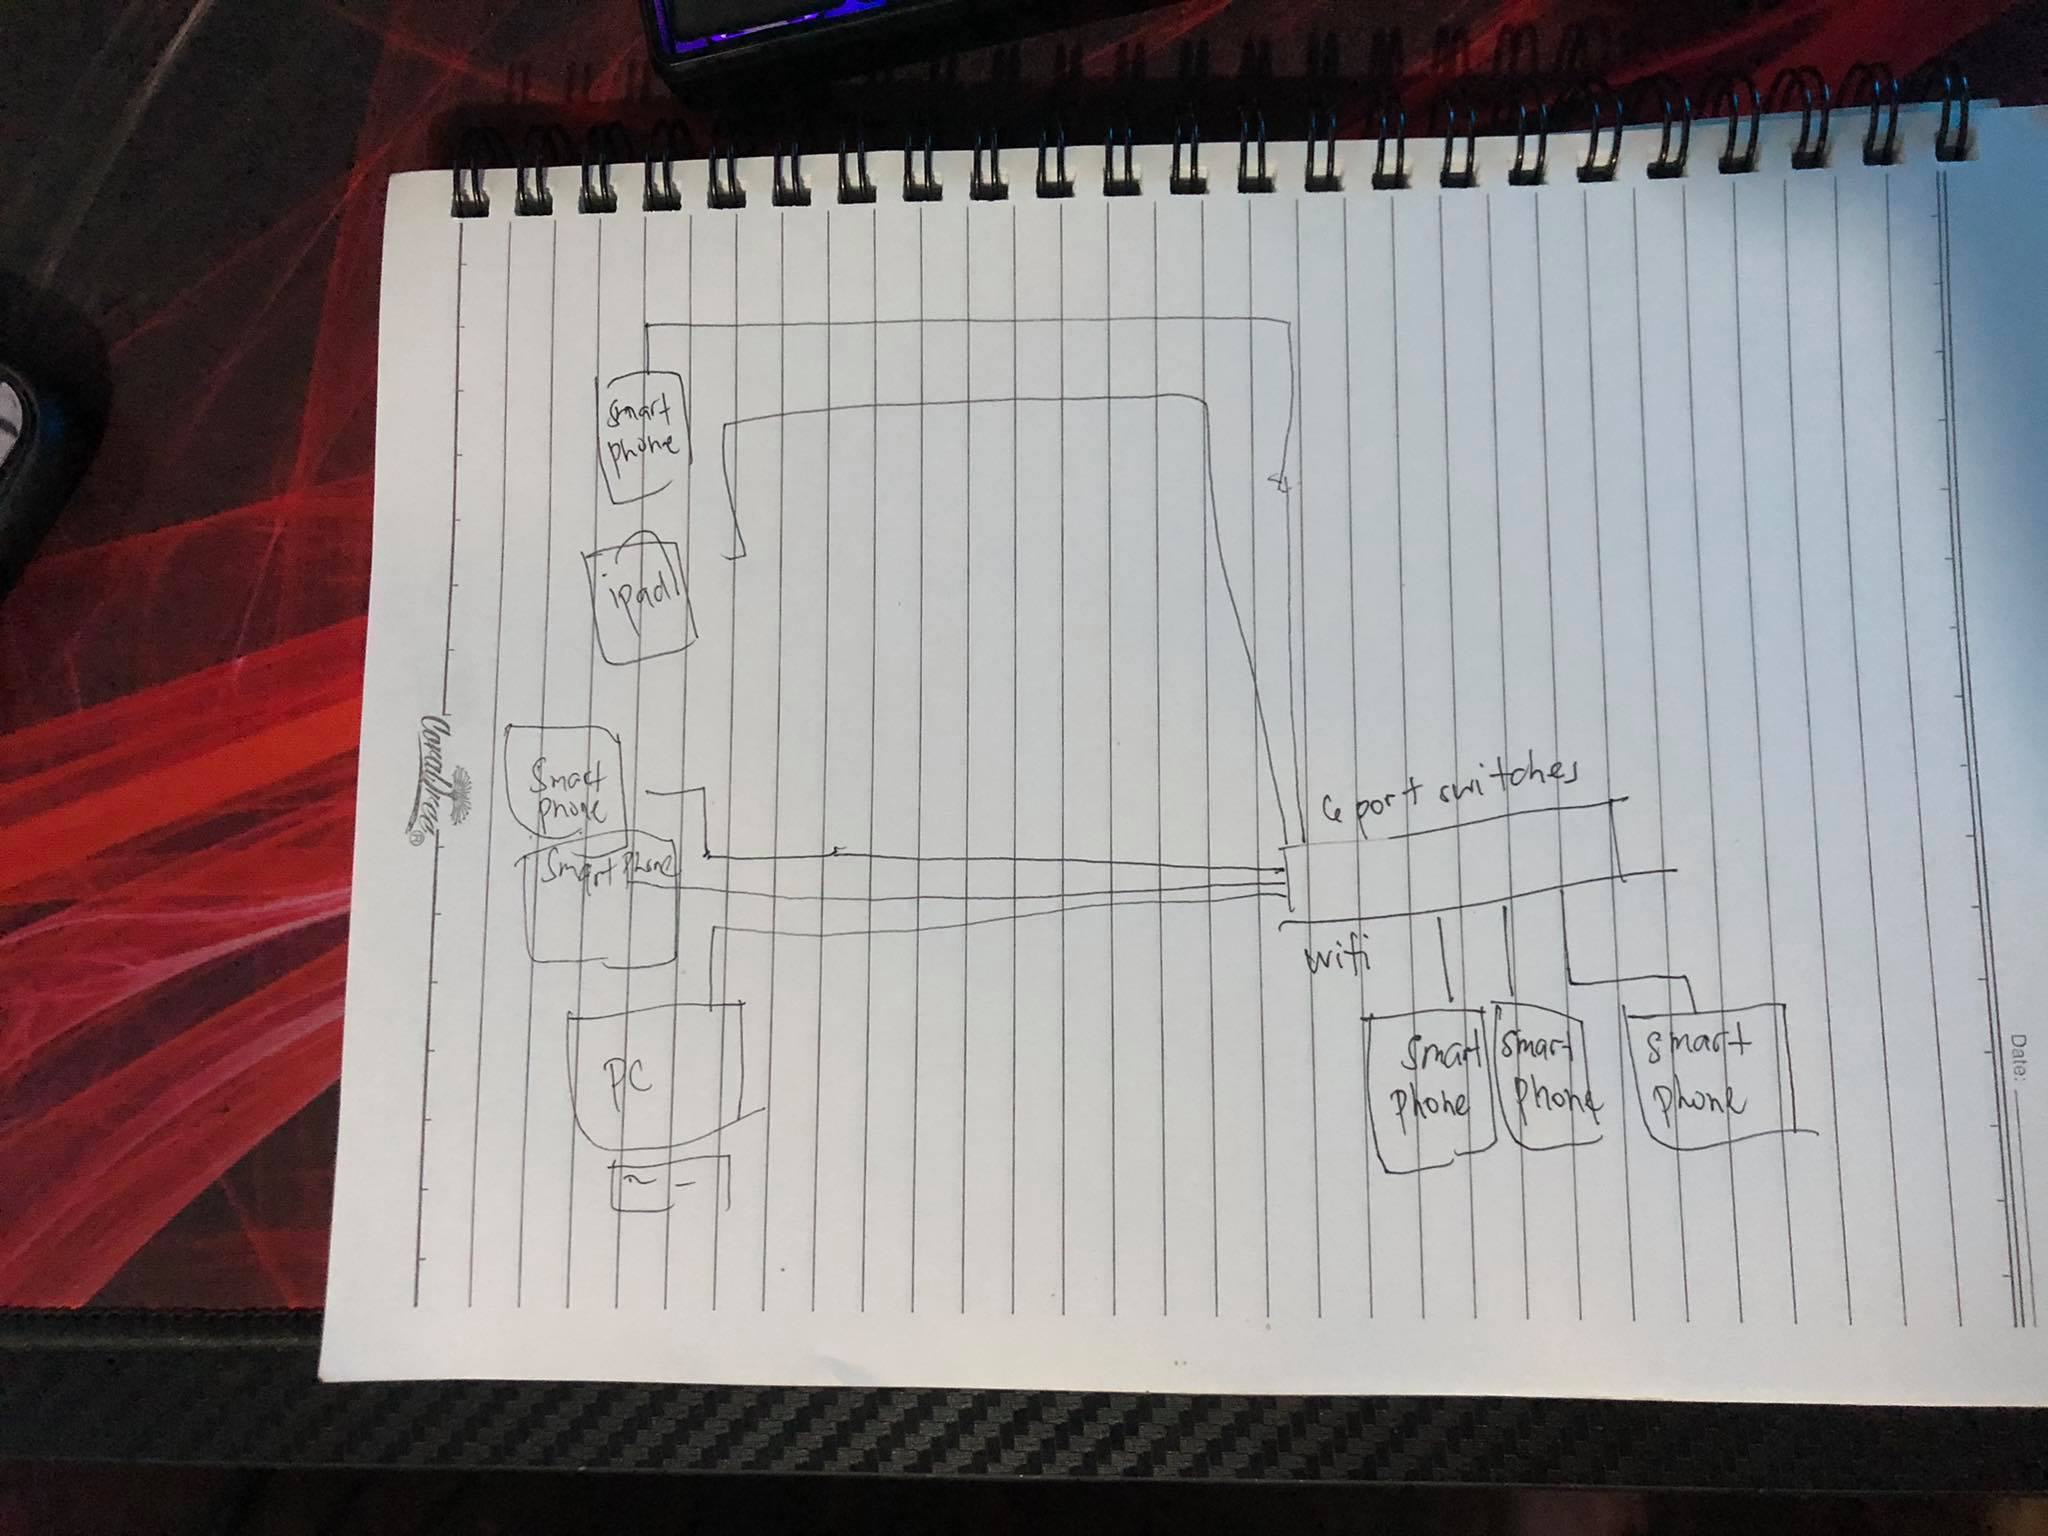 smart
phone
ipad
Smart
phone
Smart phone
PC
6 port switches
wifi
smart
phone
smart
phone
smart
phone
Date: